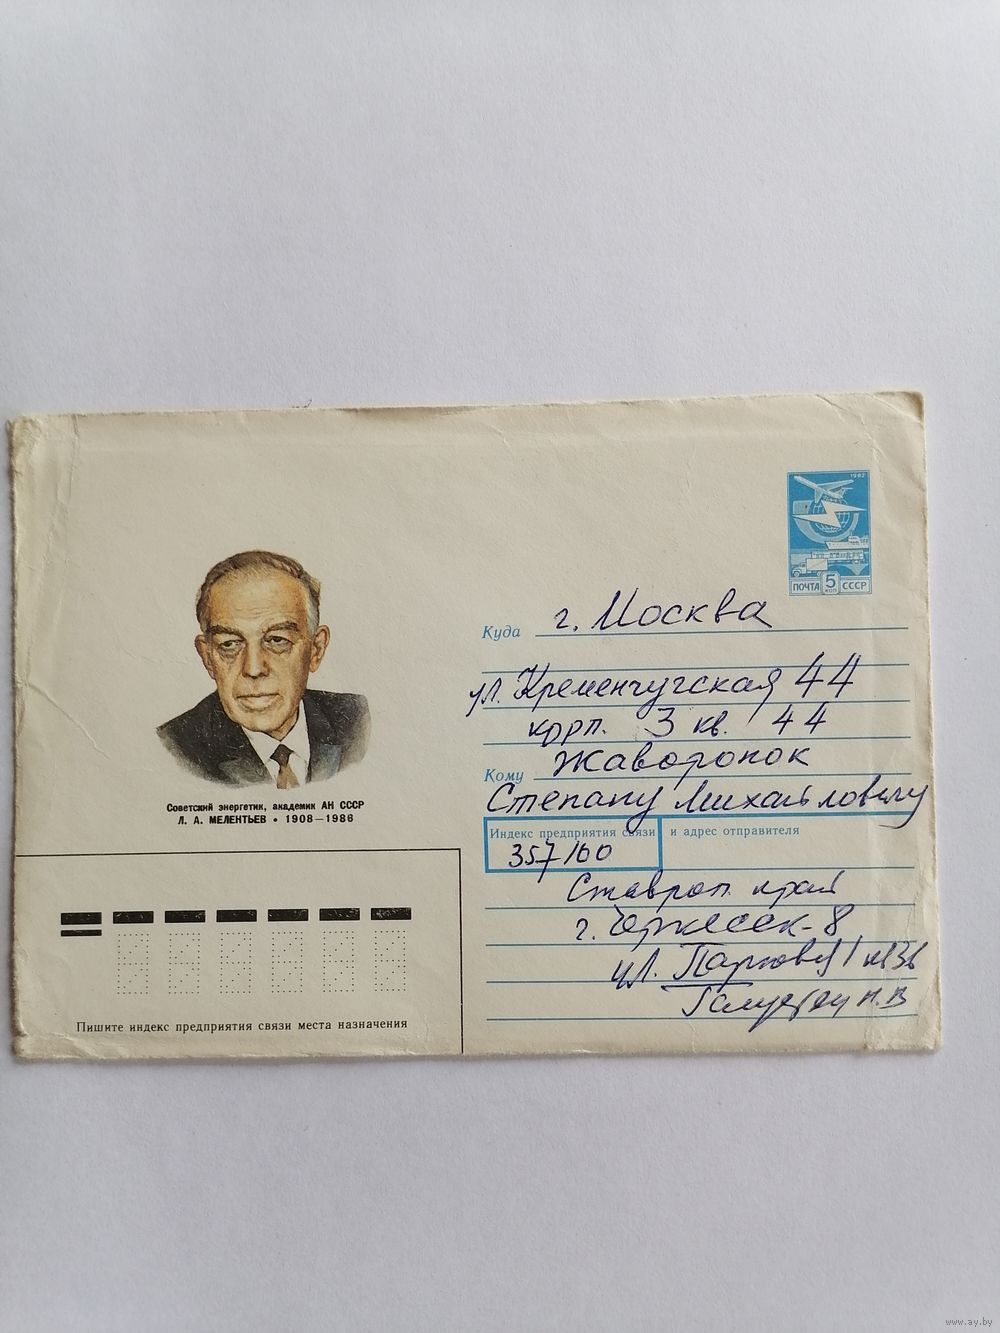 1982
ПОЧТА 5 КОП СССР
Куда г. Москва
ул. Кременчугская 44
корп. 3 кв. 44
Кому Жаворонок
Степану Михайловичу
Индекс предприятия связи и адрес отправителя
357100
Ставроп. край
г. Черкесск-8
ул. Парковая
Н. В
Советский энергетик, академик АН СССР
Л. А. МЕЛЕНТЬЕВ • 1908–1986
Пишите индекс предприятия связи места назначения
www.ay.by